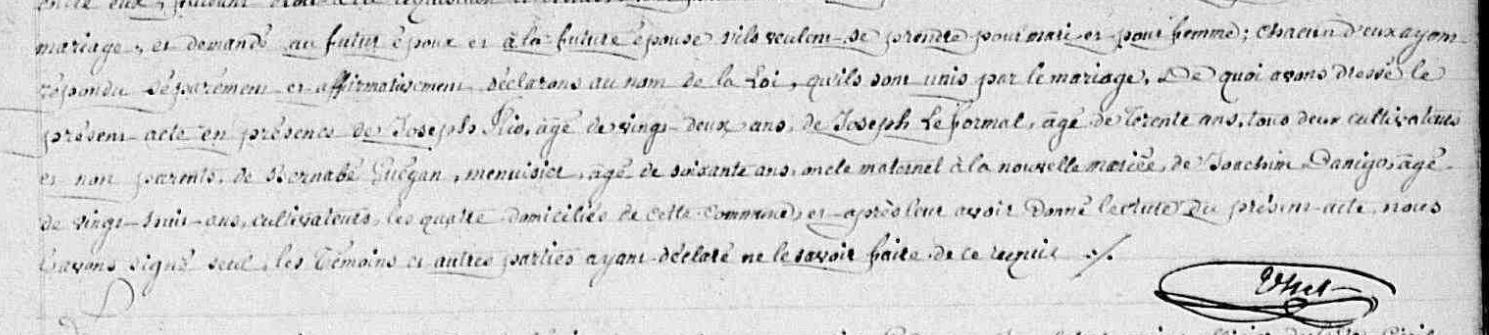 mariage, et demandé au futur époux et à la future épouse s'ils veulent se prendre pour mari et pour femme; chacun d'eux ayant
répondu séparément et affirmativement déclarons au nom de la Loi, qu'ils sont unis par le mariage. De quoi avons dressé le
présent acte en présence de Joseph Rio, âgé de vingt-deux ans, de Joseph Le formal, âgé de trente ans, tous deux cultivateurs
et non parents, de Bernabé Guégan, menuisier, âgé de soixante ans, oncle maternel à la nouvelle mariée, de Joachim Danigo, âgé
de vingt-huit-ans, cultivateurs, les quatre domiciliés de cette commune, et après leur avoir donné lecture du présent acte, nous
l'avons signé seul, les témoins et autres parties ayant déclaré ne le savoir faire de ce requis ./.